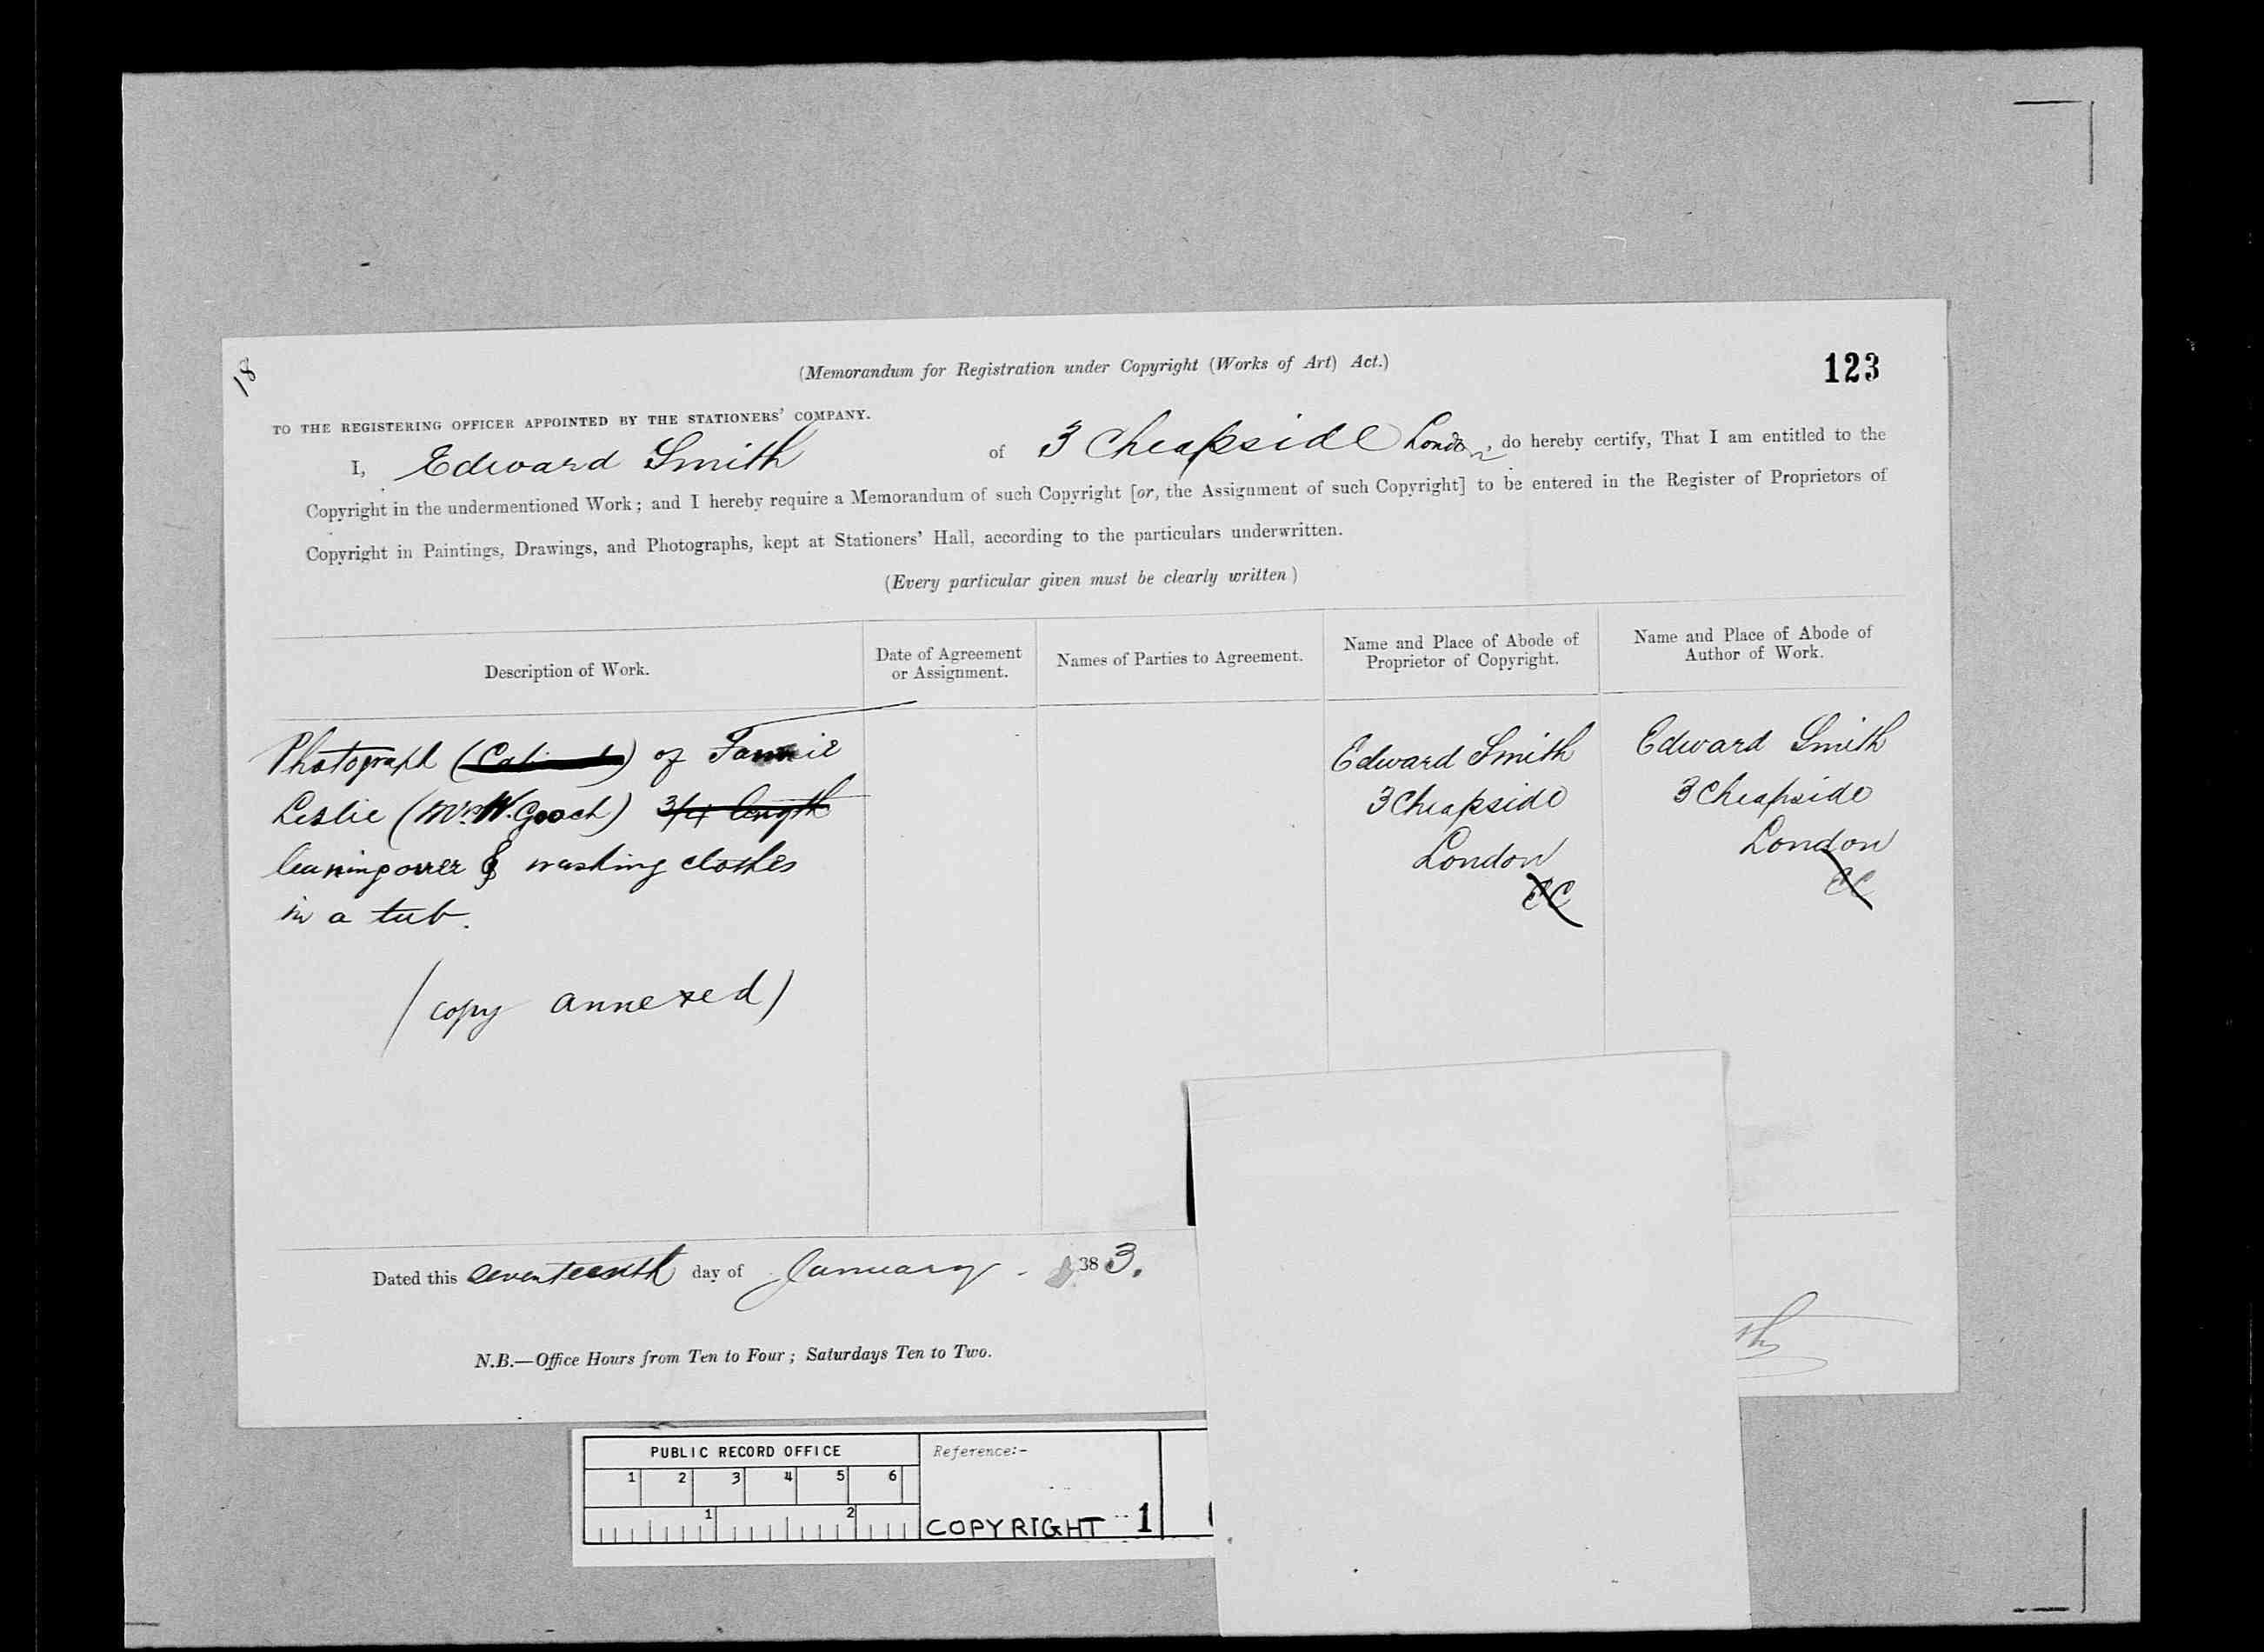 18
(Memorandum for Registration under Copyright (Works of Art) Act.)
123
TO THE REGISTERING OFFICER APPOINTED BY THE STATIONERS' COMPANY.
I, Edward Smith of 3 Cheapside London, do hereby certify, That I am entitled to the
Copyright in the undermentioned Work; and I hereby require a Memorandum of such Copyright [or, the Assignment of such Copyright] to be entered in the Register of Proprietors of
Copyright in Paintings, Drawings, and Photographs, kept at Stationers' Hall, according to the particulars underwritten.
(Every particular given must be clearly written)
Description of Work.
Date of Agreement
or Assignment.
Names of Parties to Agreement.
Name and Place of Abode of
Proprietor of Copyright.
Name and Place of Abode of
Author of Work.
Photograph () of Fannie
Leslie (Mrs W. Gooch) 3/4 length
leaning over & washing clothes
in a tub.
(copy annexed)
Edward Smith
3 Cheapside
London
EC
Edward Smith
3 Cheapside
London
EC
Dated this seventeenth day of January 1883.
N.B.—Office Hours from Ten to Four; Saturdays Ten to Two.
PUBLIC RECORD OFFICE
Reference:-
1 2 3 4 5 6
1 2
COPYRIGHT 1